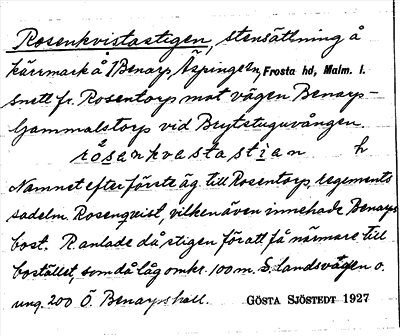 Rosenkvistastigen, stensättning å
kärrmark å 1/ Benarp Äspinge sn, Frosta hd, Malm. l.
snett fr. Rosentorp mot vägen Benarp-
Gammalstorp vid Brytstuguvången.
råsankvastastian h
Namnet efter förste äg. till Rosentorp, regements
sadelm. Rosenqvist, vilken även innehade Benarps
bost. R. anlade då stigen för att få närmare till
bostället, som då låg omkr. 100 m. S. landsvägen o.
ung. 200 Ö. Benarps hall. GÖSTA SJÖSTEDT 1927